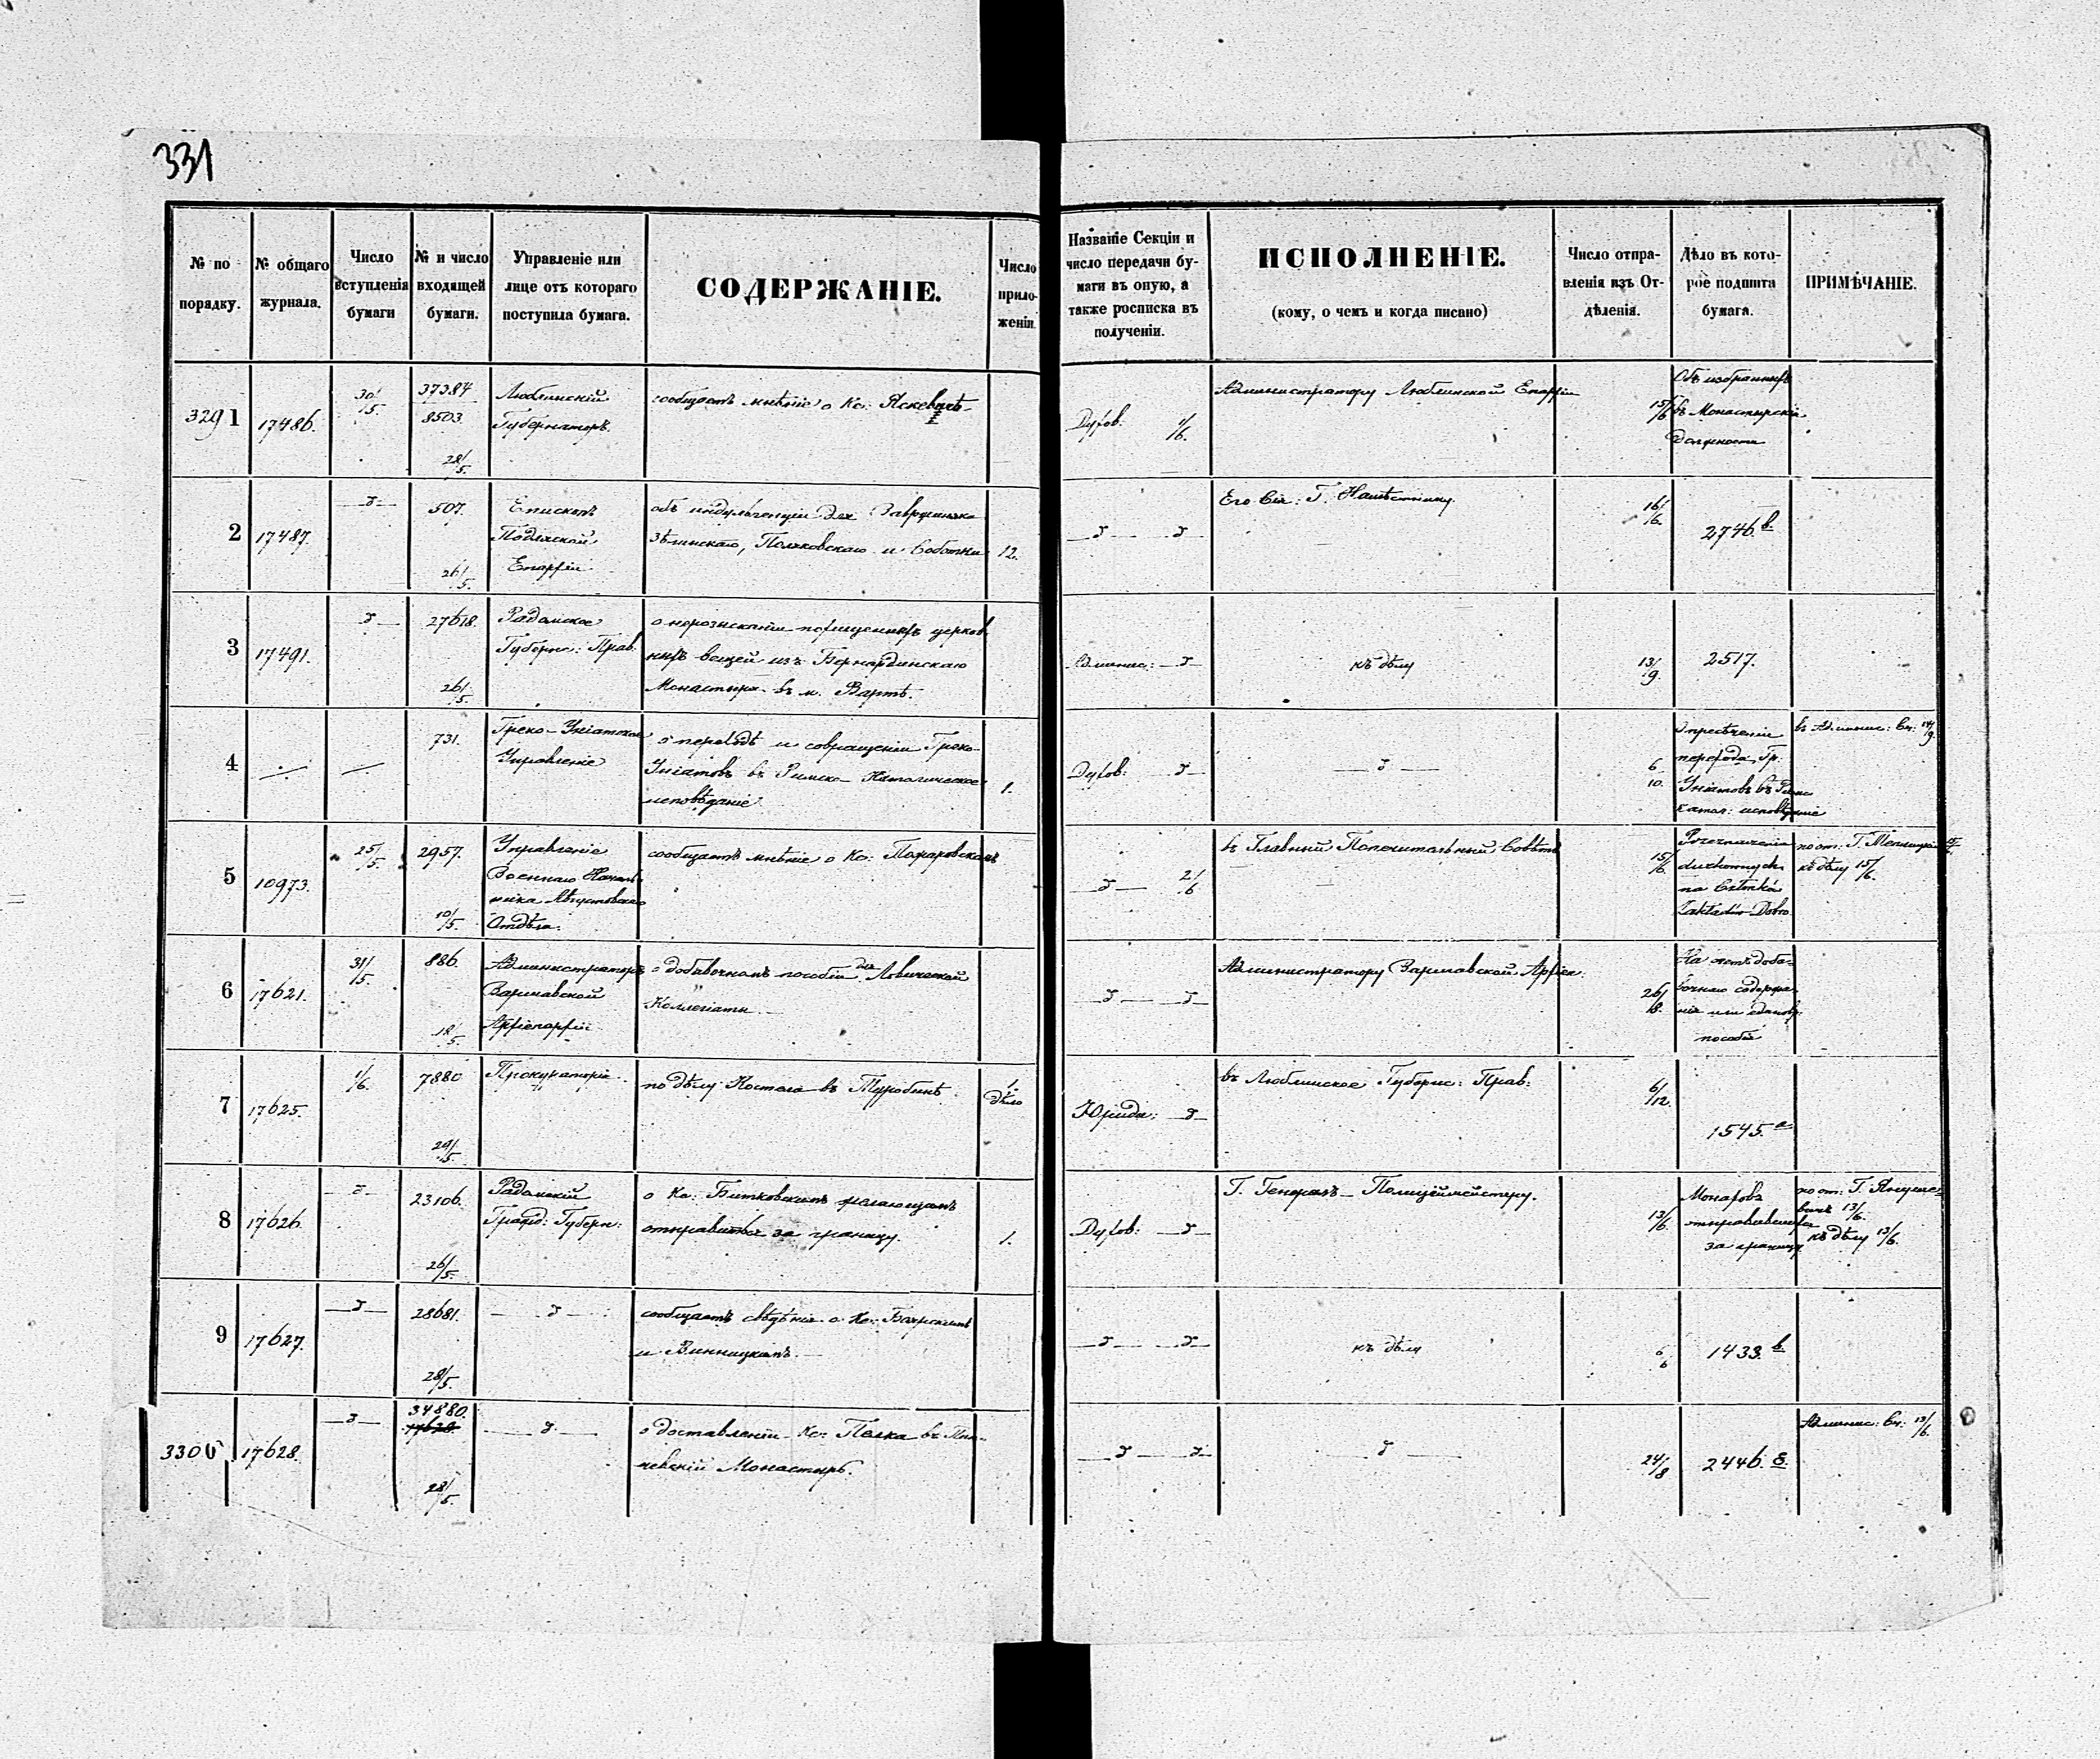 331
№ по
порядку.
№ общаго
журнала.
Число
вступленія
бумаги
№ и число
входящей
бумаги.
Управленіе или
лице отъ котораго
поступила бумага.
СОДЕРЖАНІЕ.
Число
прило-
женій.
Названіе Секціи и
число передачи бу-
маги въ оную, а
также росписка въ
полученіи.
ИСПОЛНЕНІЕ.
(кому, о чемъ и когда писано)
Число отпра-
вленія изъ От-
дѣленія.
Дѣло въ кото-
рое подшита
бумага.
ПРИМѢЧАНІЕ.
3291
17486.
30/5.
37384
8503.
28/5.
Люблинскій
Губернаторъ.
сообщаетъ мнѣніе о Кс: Яскевичѣ
Духов: 1/6.
Администратору Люблинской Епархіи
15/6
Объ избранныхъ
въ Монастырскія
должности
2
17487.
507.
26/5.
Епископъ
Подляской
Епархіи
объ индульгенціи для
Поляковскаго и
12.
Его Сія: Г. Намѣстнику.
16/6.
2746 b.
3
17491.
27618.
26/5.
Радомское
Губерн: Прав:
о норозысканіи похищенныхъ церков
ныхъ вещей изъ Бернардинскаго
Монастыря въ м. Вартѣ.
Админис:
къ дѣлу
13/9.
2517.
4
731.
Греко-Уніатское
Управленіе
о переходѣ и совращеніи Греко-
Уніатовъ въ Римско-Католическое
исповѣданіе
1.
Духов:
6
10.
О пресѣченіи
перехода Гр:
Уніатовъ въ Римс
катол: исповѣданіе
въ Админис: Ск: 14/9.
5
10973.
25/5.
2957.
10/5.
Управленіе
Военнаго Началь-
ника Августовскаго
Отдѣла.
сообщаетъ мнѣніе о Кс: Пожаровскомъ
2/6
въ Главный Попечительный Совѣтъ
15/6.
duchownych
na Członków
Zakładów Dobro
по от: Г.
къ дѣлу 15/6.
6
17621.
31/5.
886.
18/5.
Администраторъ
Варшавской
Архіепархіи
о добавочномъ пособіи для Ловичской
Коллегіаты
Администратору Варшавской Архіеп:
26/8.
На счетъ доба-
вочнаго содержа-
нія или единовр:
пособія
7
17625.
1/6.
7880
29/5.
Прокураторія
по дѣлу Костела въ Туробинѣ
1.
дѣло
Юриди:
въ Люблинское Губерн: Прав:
6/12.
1545. a
8
17626.
23106.
26/5.
Радомскій
Гражд: Губерн:
о Кс: Битковскомъ желающемъ
отправиться за границу.
1.
Духов:
Г. Генералъ-Полицеймейстеру.
13/6.
Монаховъ
отправляющихся
за границу
по от: Г. Янушке-
вича 13/6.
къ дѣлу 13/6.
9
17627.
28681.
28/5.
сообщаетъ свѣденія о Кс:
и Винницкомъ.
къ дѣлу
6
6
1433. b
3300
17628.
34880.
28/5.
о доставленіи Кс: Полка въ Пин-
чевскій Монастырь.
24/8
2446. в.
Админис: Ск: 13/6.